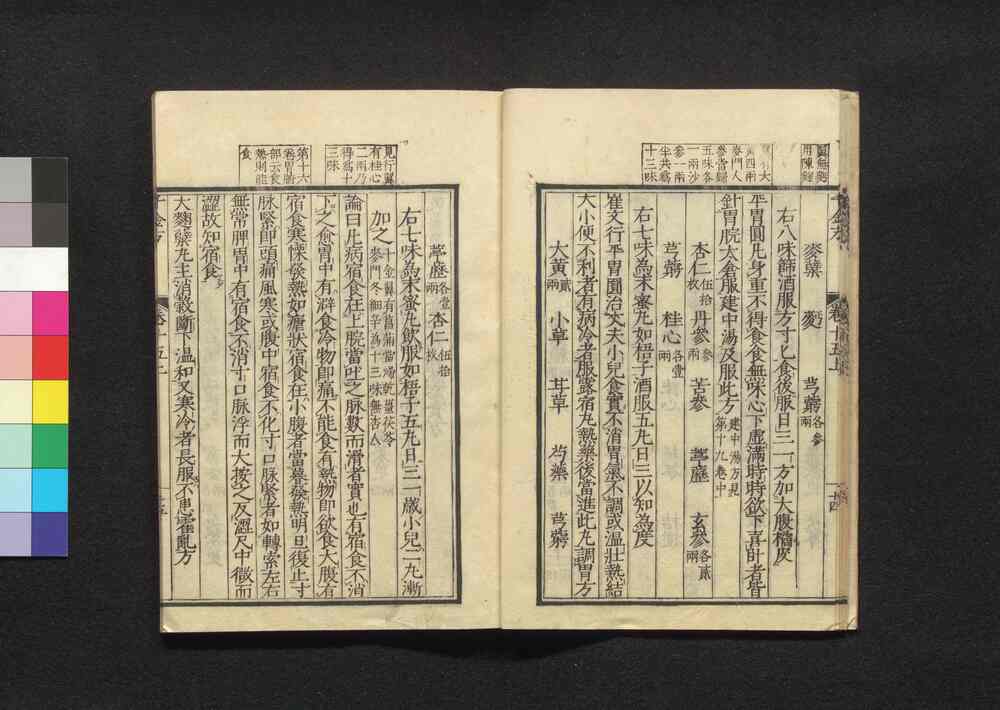 麥蘖　麥　芎藭各參兩
右八味篩酒服方寸匕食後服日三一方加大腹檳皮
平胃圓凡身重不得食食無味心下虛滿時時欲下喜臥者皆
針胃脘太倉服建中湯及服此方建中湯方見第十九卷中
杏仁伍拾枚　丹參參兩　苦參　葶藶　玄參各貳兩
芎藭　桂心各壹兩
右七味為末蜜丸如梧子酒服五丸日三以知為度
崔文行平胃圓治丈夫小兒食實不消胃氣不調或溫壯熱結
大小便不利者有病冷者服露宿丸熱藥後當進此丸調胃方
大黃貳兩　小草　甘草　芍藥　芎藭
葶藶各壹兩　杏仁伍拾枚
右七味為末蜜丸飲服如梧子五丸日三一歲小兒二丸漸
加之千金翼有菖蒲當歸乾薑茯苓麥門冬細辛為十三味無杏人
論曰凡病宿食在上脘當吐之脉數而滑者實也有宿食不消
下之愈胃中有澼食冷物即痛不能食有熱物即欲食大腹有
宿食寒慄發熱如瘧狀宿食在小腹者當暮發熱明旦復止寸
脉緊即頭痛風寒或腹中宿食不化寸口脉緊者如轉索左右
無常脾胃中有宿食不消寸口脉浮而大按之反澀尺中微而
澀故知宿食
大麴蘖丸主消穀斷下溫和又寒冷者長服不患霍亂方
四兩
麥門人
參當歸
五味各
一兩沙
參一兩
半共為
十三味
有桂心
二兩乃
得為十
三味
第十六
卷胃腑
部云食
熱則能
食
千金方
卷十五下